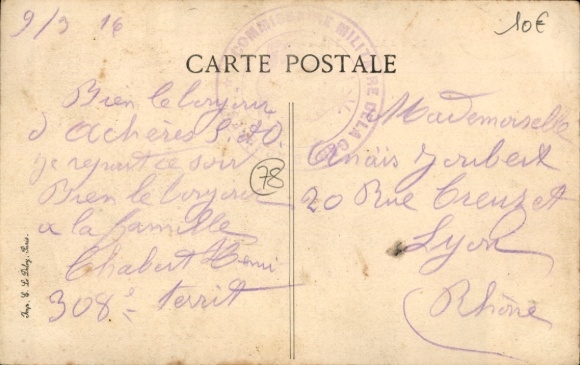 9/3 16
10€
COMMISSAIRE MILITAIRE DE LA GA
CARTE POSTALE
Bien le bonjour
d Achères S. et O.
je repart ce soir
Bien le bonjour
a la famille
Chabert Henri
308e territ
78
Mademoiselle
Anaïs Joubert
20 Rue Creuzet
Lyon
Rhône
Imp. E. Le Deley, Paris.